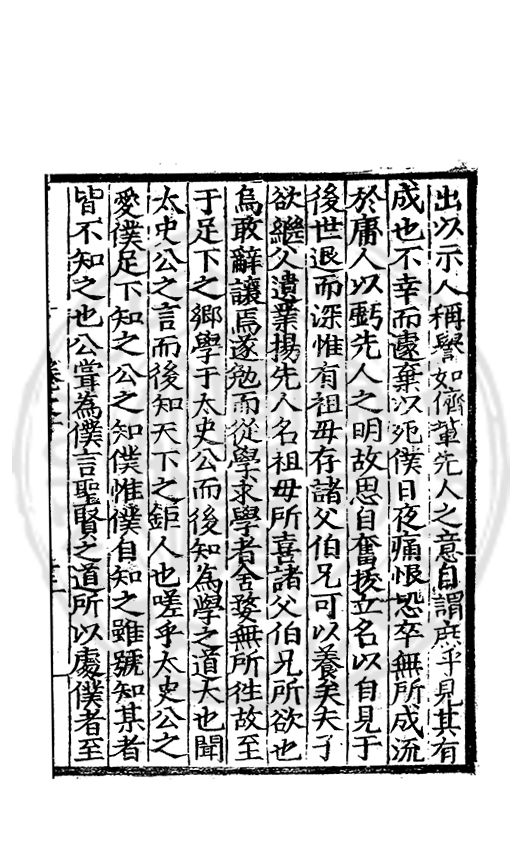 出以示人稱譽如儕輩先人之意自謂庶乎見其有
成也不幸而遽棄以死僕日夜痛恨恐卒無所成流
於庸人以虧先人之明故思自奮拔立名以自見于
後世退而深惟有祖母存諸父伯兄可以養矣夫子
欲繼父遺業揚先人名祖母所喜諸父伯兄所欲也
烏敢辭讓焉遂勉而從學求學者舍婺無所徃故至
于足下之鄉學于太史公而後知為學之道大也聞
太史公之言而後知天下之鉅人也嗟乎太史公之
愛僕足下知之公之知僕惟僕自知之雖號知某者
皆不知之也公嘗為僕言聖賢之道所以處僕者至